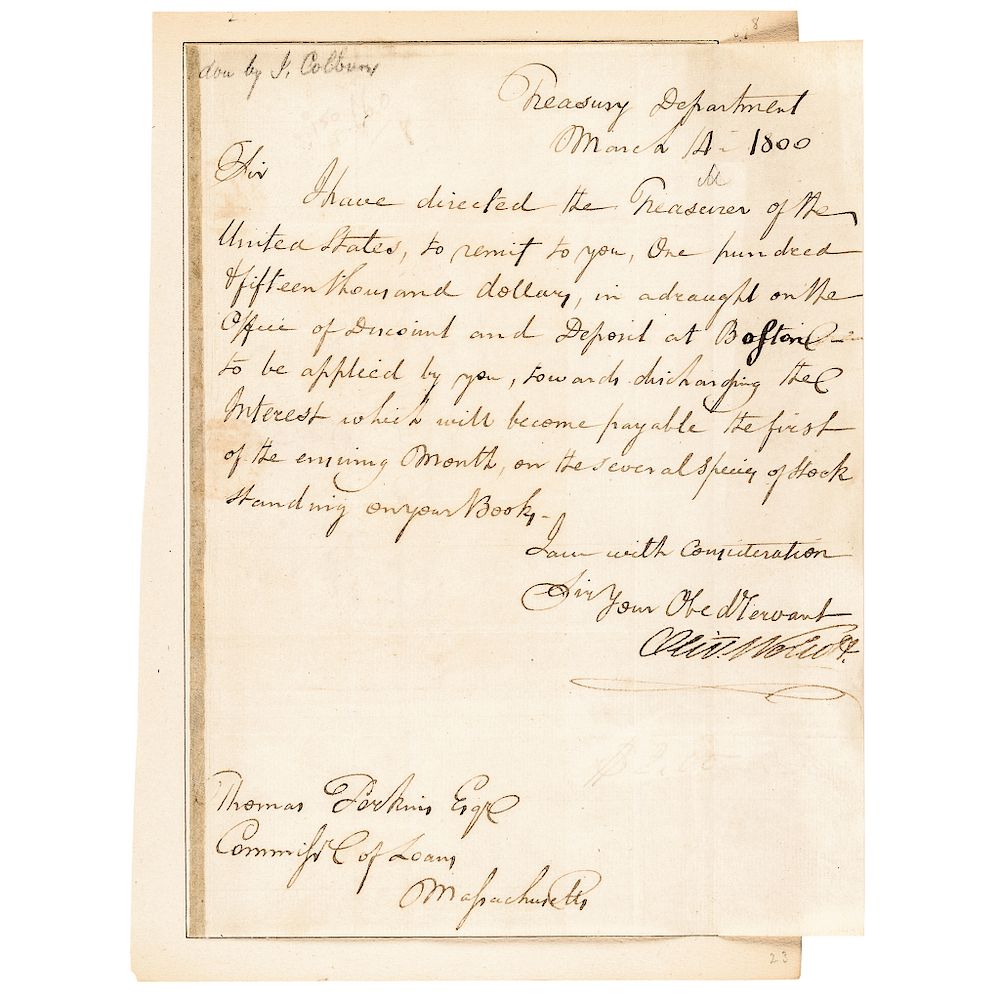 by J. Colburn
Treasury Department
March 14 1800
Sir
I have directed the Treasurer of the
United States, to remit to you, One hundred
& fifteen thousand dollars, in a draught on the
Office of Discount and Deposit at Boston
to be applied by you, towards discharging the
Interest which will become payable the first
of the ensuing Month, on the several species of Stock
standing on your Books.
I am with Consideration
Sir Your Obed Servant
Oliv. Wolcott.
Thomas Perkins Esqr
Commissr of Loans
Massachusetts
23